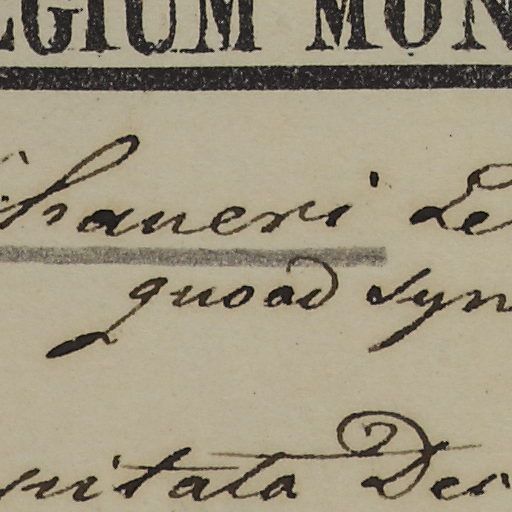 EGIUM MON
haueri Le
quoad syn
uitata Dec